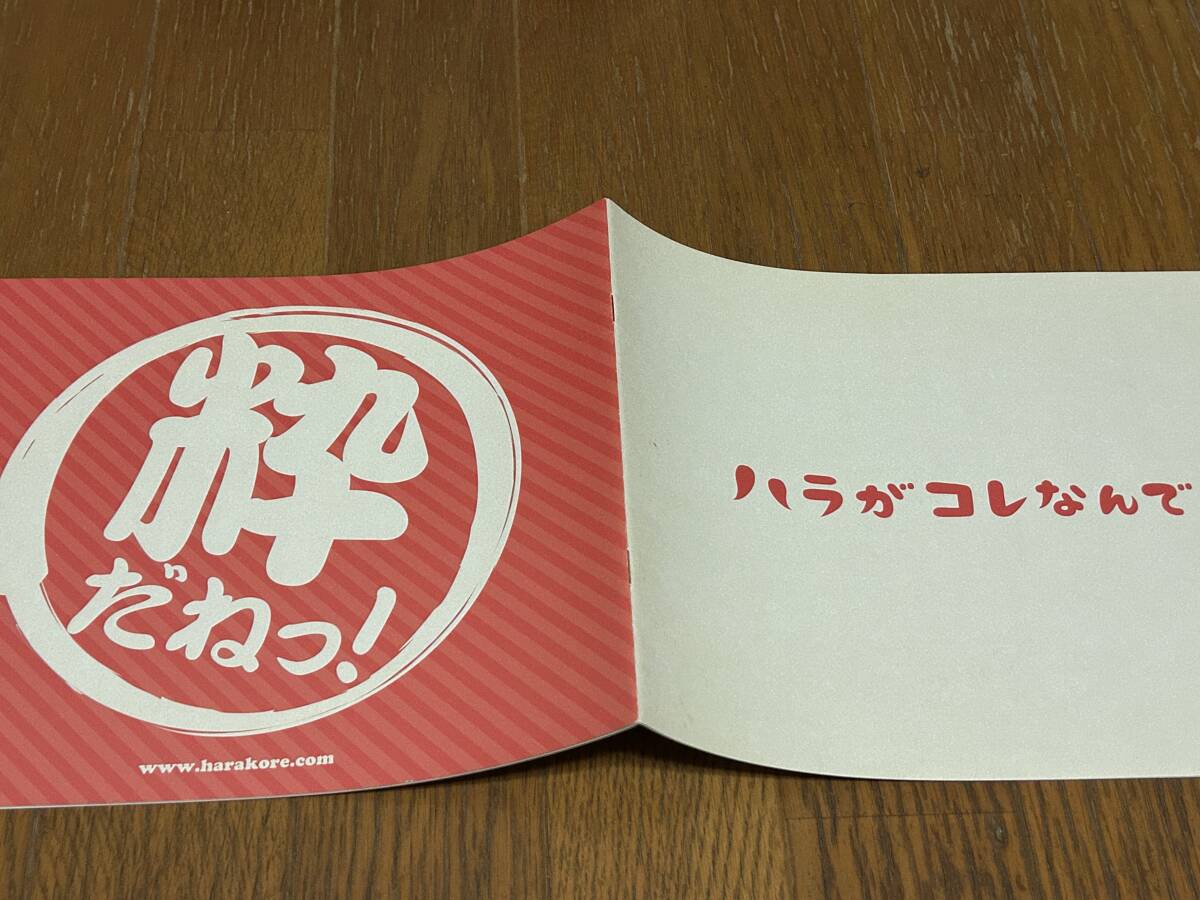 粋
だねっ!
www.harakore.com
ハラがコレなんで